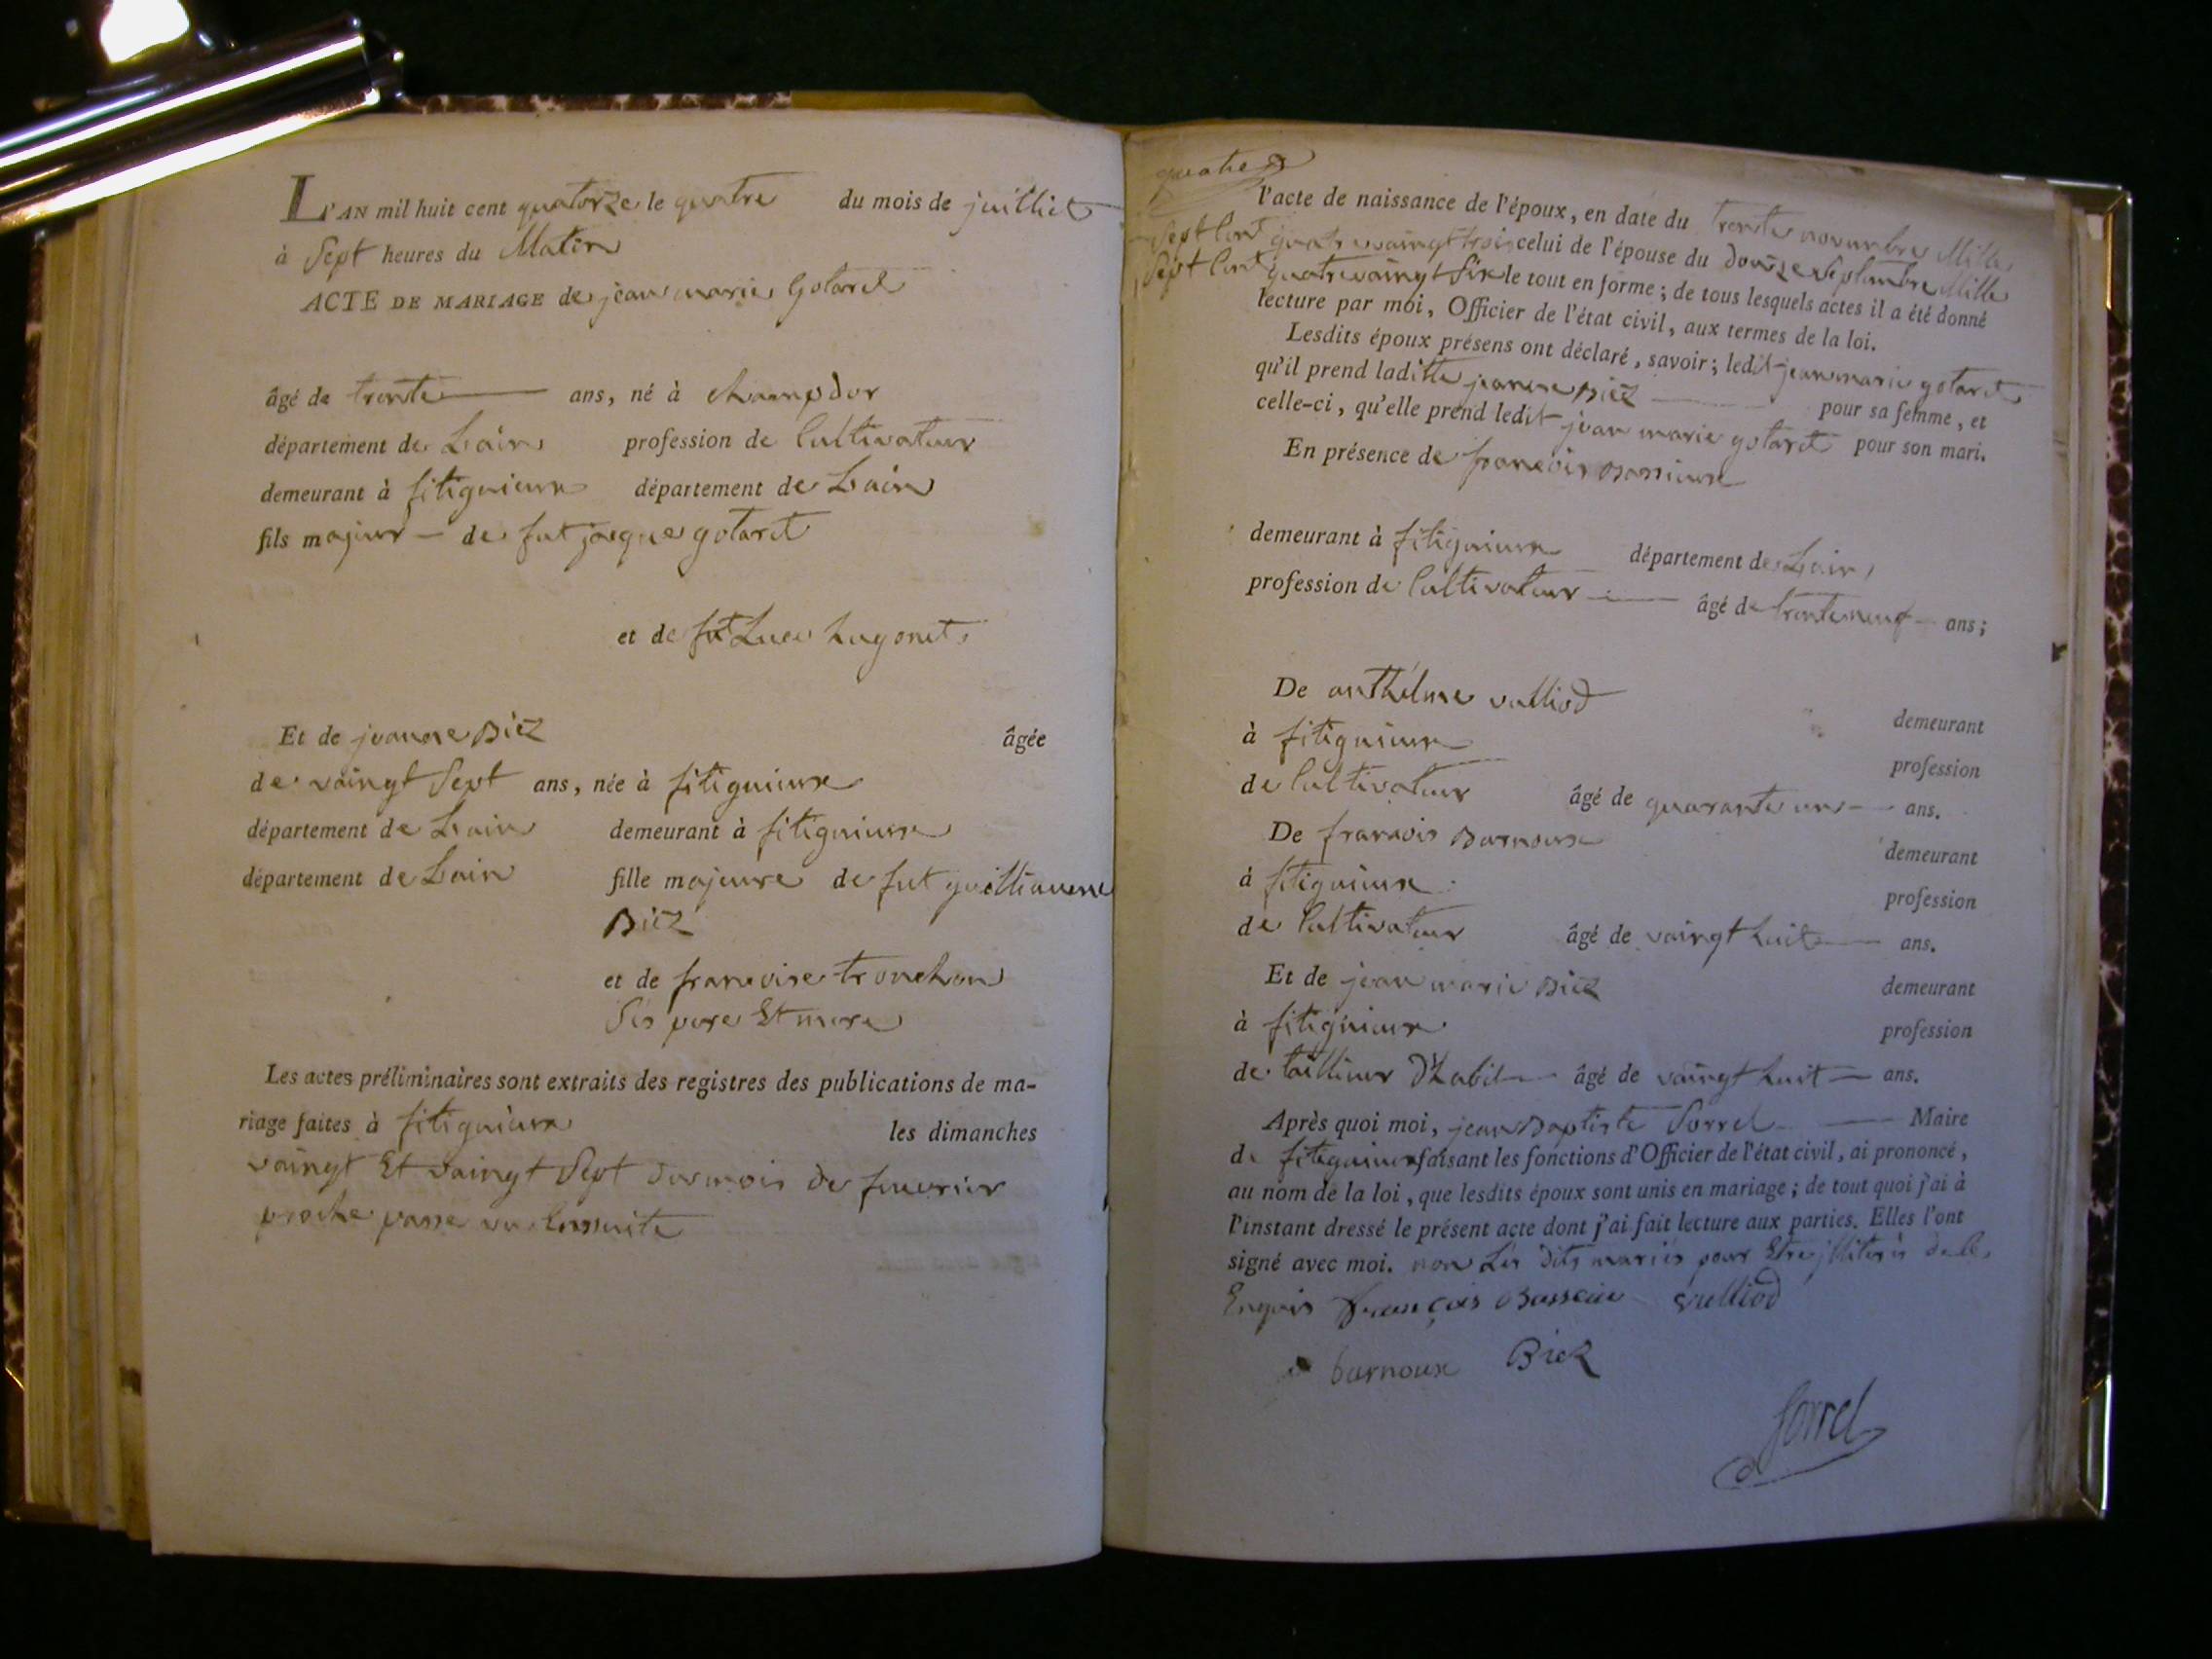 L'AN mil huit cent quatorze le quatre du mois de juilliet
à Sept heures du Matin
ACTE DE MARIAGE de jean marie Gotaret
âgé de trente ans, né à Champdor
département de Lain profession de Cultivateur
demeurant à fitignieux département de Lain
fils majeur de fut jacque gotaret
et de fut Luce hugonet
Et de jeanne Biez âgée
de vaingt Sept ans, née à fitignieux
département de Lain demeurant à fitignieux
département de Lain fille majeure de fut guilliaume
Biez
et de francoise tronchon
Ses pere Et mere
Les actes préliminaires sont extraits des registres des publications de ma-
riage faites à fitignieux les dimanches
vaingt Et vaingt Sept du mois de feuvrier
proche passe
quatre
l'acte de naissance de l'époux, en date du trente novembre Mille
Sept Cent quatrevaingt trois celui de l'épouse du douze Septembre Mille
Sept Cent quatrevaingt Six le tout en forme ; de tous lesquels actes il a été donné
lecture par moi, Officier de l'état civil, aux termes de la loi.
Lesdits époux présens ont déclaré, savoir ; ledit jean marie gotaret
qu'il prend laditte jeanne Biez pour sa femme, et
celle-ci, qu'elle prend ledit jean marie gotaret pour son mari.
En présence de francois Bassieux
demeurant à fitignieux département de Lain
profession de Cultivateur âgé de trente neuf ans ;
De anthelme valliod demeurant
à fitignieux profession
de Cultivateur âgé de quarante un ans.
De francois Barnoux demeurant
à fitignieux profession
de Cultivateur âgé de vaingt huit ans.
Et de jean marie Biez demeurant
à fitignieux profession
de taillieur d'habit âgé de vaingt huit ans.
Après quoi moi, jean Baptiste Sorrel Maire
de fitignieux faisant les fonctions d'Officier de l'état civil, ai prononcé,
au nom de la loi, que lesdits époux sont unis en mariage ; de tout quoi j'ai à
l'instant dressé le présent acte dont j'ai fait lecture aux parties. Elles l'ont
signé avec moi. non Les dits mariés pour Etre jlliterés de ce
Enquis françois Bassieu valliod
barnoux Biez
Sorrel